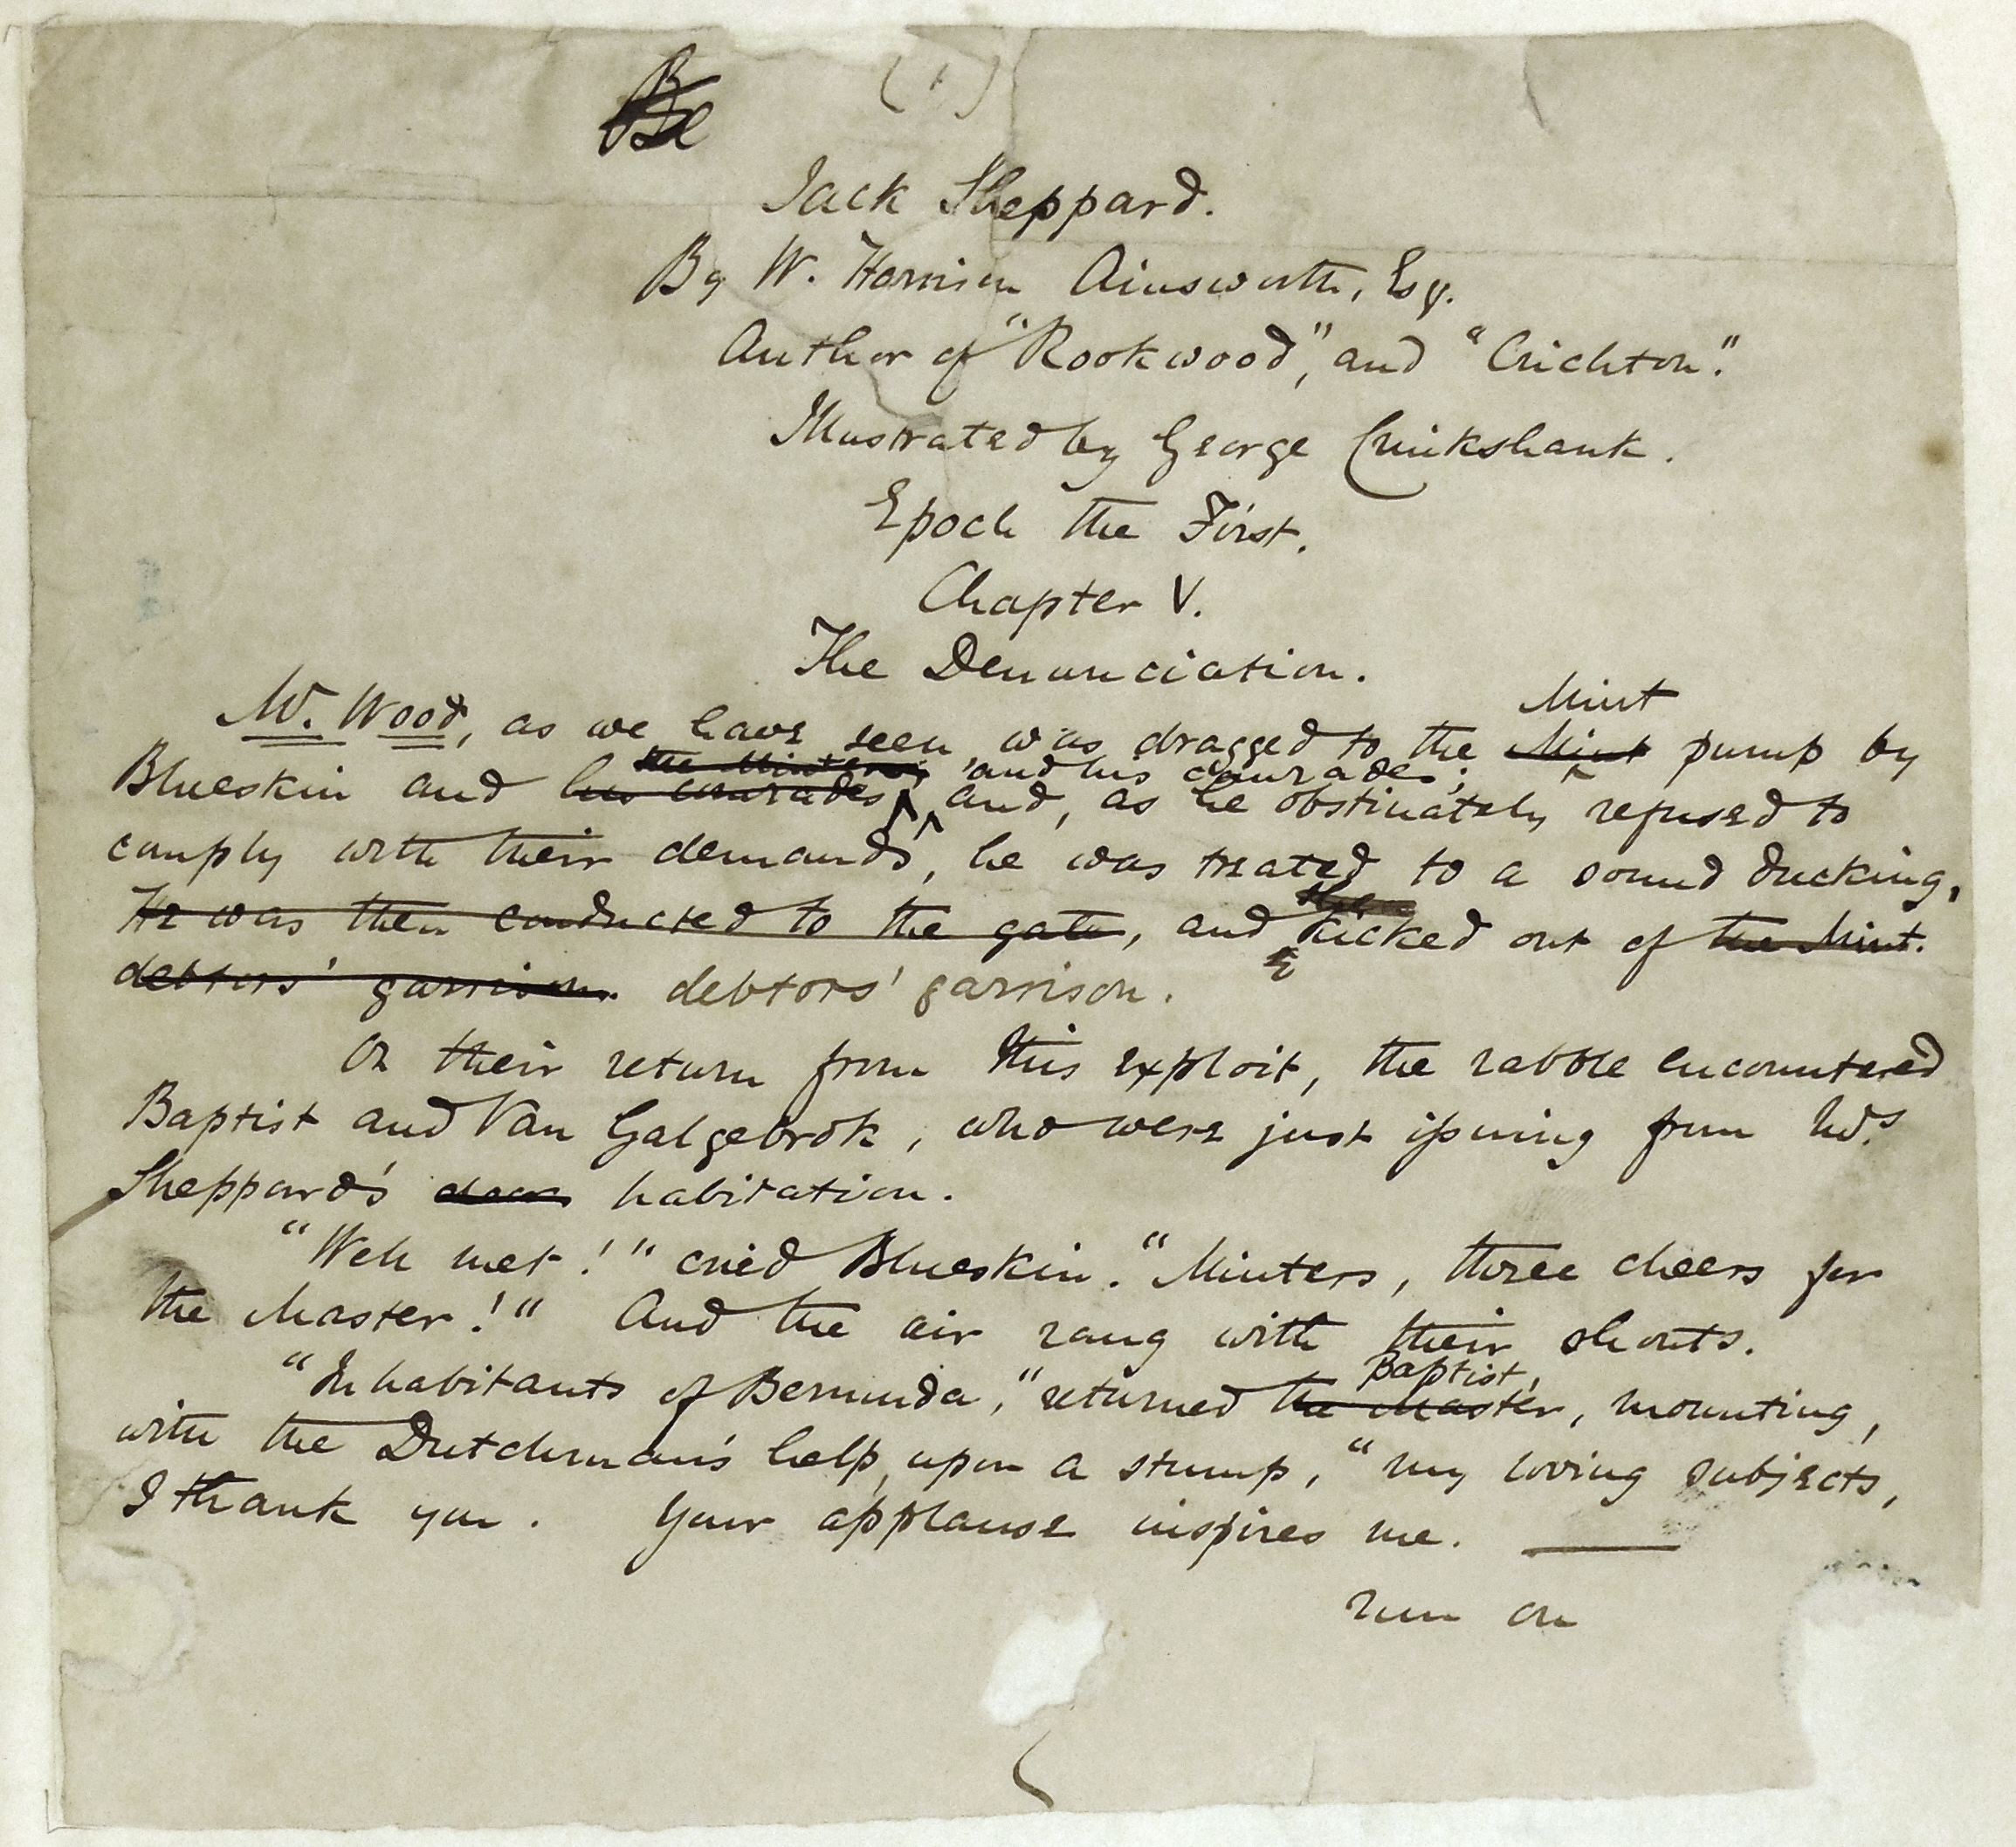 Be
(1)
Jack Sheppard.
By W. Harrison Ainsworth, Esq.
Author of "Rookwood," and "Crichton."
Illustrated by George Cruikshank.
Epoch the First.
Chapter V.
The Denunciation.
Mint
Mr. Wood, as we have seen, was dragged to the Mint pump by
the Minters, and his comrades;
Blueskin and his comrades, and, as he obstinately refused to
comply with their demands, he was treated to a sound ducking,
then
He was then conducted to the gate, and kicked out of the Mint.
&
debtors' garrison. debtors' garrison.
On their return from this exploit, the rabble encountered
Baptist and Van Galgebrok, who were just issuing from Mrs
Sheppard's door habitation.
"Well met!" cried Blueskin. "Minters, three cheers for
the Master!" And the air rang with their shouts.
Baptist,
"Inhabitants of Bermuda," returned the Master, mounting,
with the Dutchman's help, upon a stump, "my loving subjects,
I thank you. Your applause inspires me. —
run on